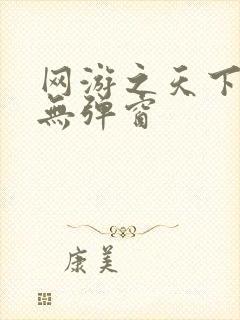 网游之天下
無弹窗
康美